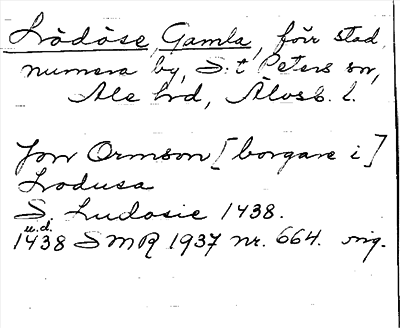 Lödöse, Gamla, förr stad,
numera by, S:t Peters sn,
Ale hd, Älvsb. l.
Jon Ormson [borgare i]
Lodusa
S. Ludosie 1438.
u.d.
1438 SMR 1937 nr. 664. orig.